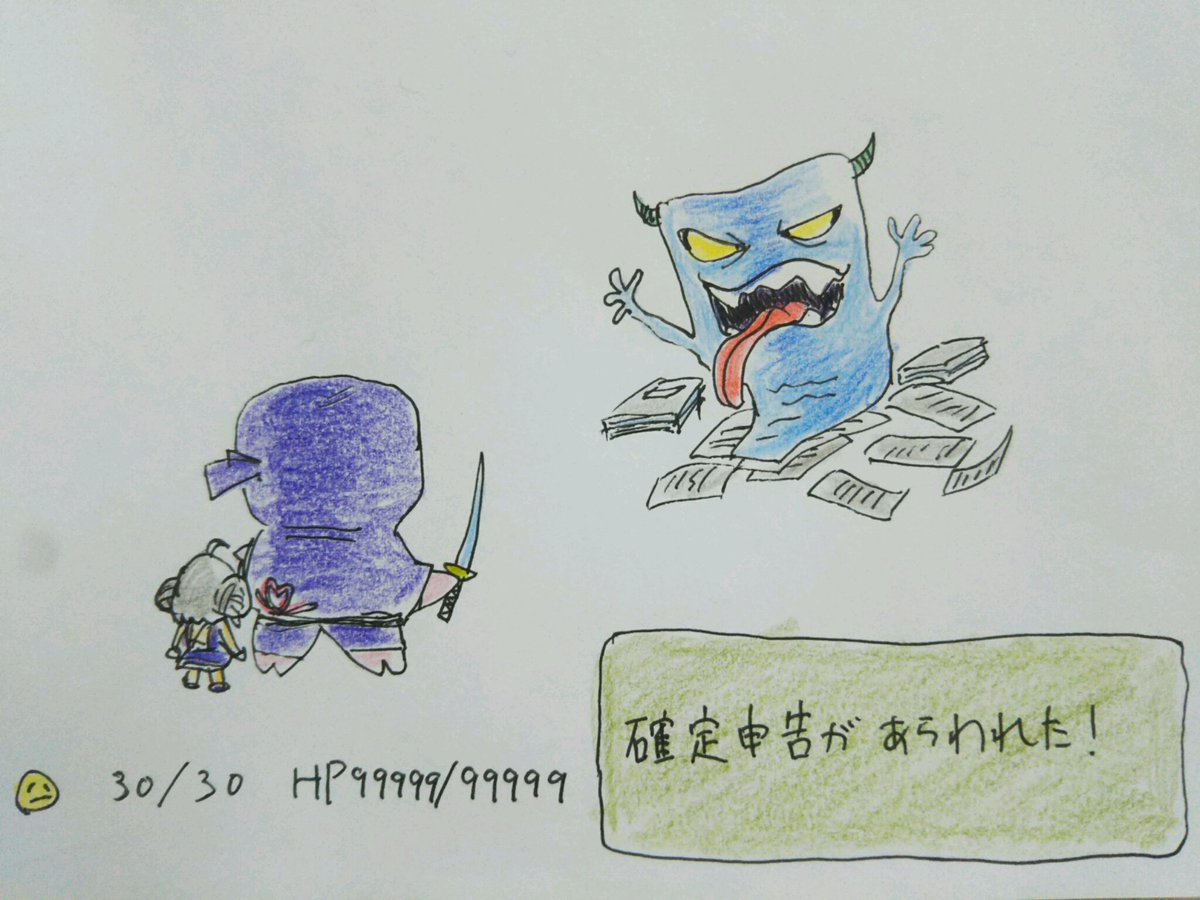 確定申告が あらわれた!
30/30 HP99999/99999